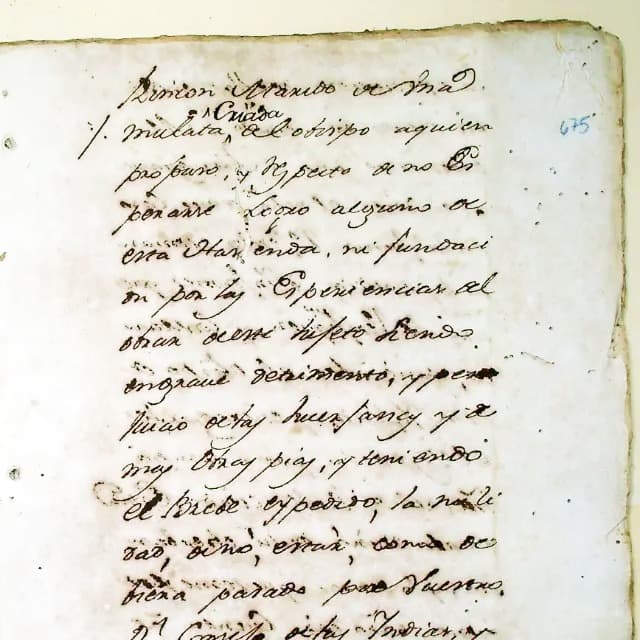 Rincon Marido de Vna
mulata, ^Criada del obispo aquien
propuso, y respecto de no Es
perarse Logro alguno de
esta Hazienda, ni fundaci
on por las Experiencias del
obrar deste sujeto siendo
engrave detrimento, y per
juicio delas huerfanas y de
mas obras pias, y teniendo
el Breve expedido, la nuli
dad, deno, estar, como de
biera pasado por Vuestro
Rl Consejo delas Indias y
675